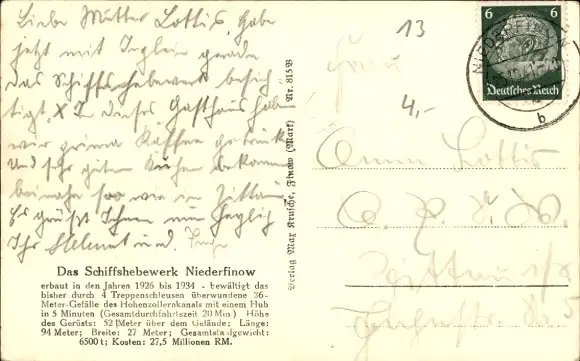 Liebe Mutter Lottis, habe
jetzt mit gerade
das Schiffshebewerk besich
tigt, X In dieses Gasthaus haben
wir prima Kaffee getrunk
und sehr guten Kuchen bekommen
beinahe soo wie in Zittau
Es grüßt Ihnen nun herzlich
Ihr Helmut und
Das Schiffshebewerk Niederfinow
erbaut in den Jahren 1926 bis 1934 - bewältigt das
bisher durch 4 Treppenschleusen überwundene 36-
Meter-Gefälle des Hohenzollernkanals mit einem Hub
in 5 Minuten (Gesamtdurchfahrtszeit 20 Min.) Höhe
des Gerüsts: 52 Meter über dem Gelände; Länge:
94 Meter; Breite: 27 Meter; Gesamtstahlgewicht:
6500 t; Kosten: 27,5 Millionen RM.
Verlag Max Krusche, Finow (Mark) Nr. 815 B
13
4,-
6 6
Deutsches Reich
NIEDERFINOW
b
Frau
Anna Lottis
Zittau i/Sa